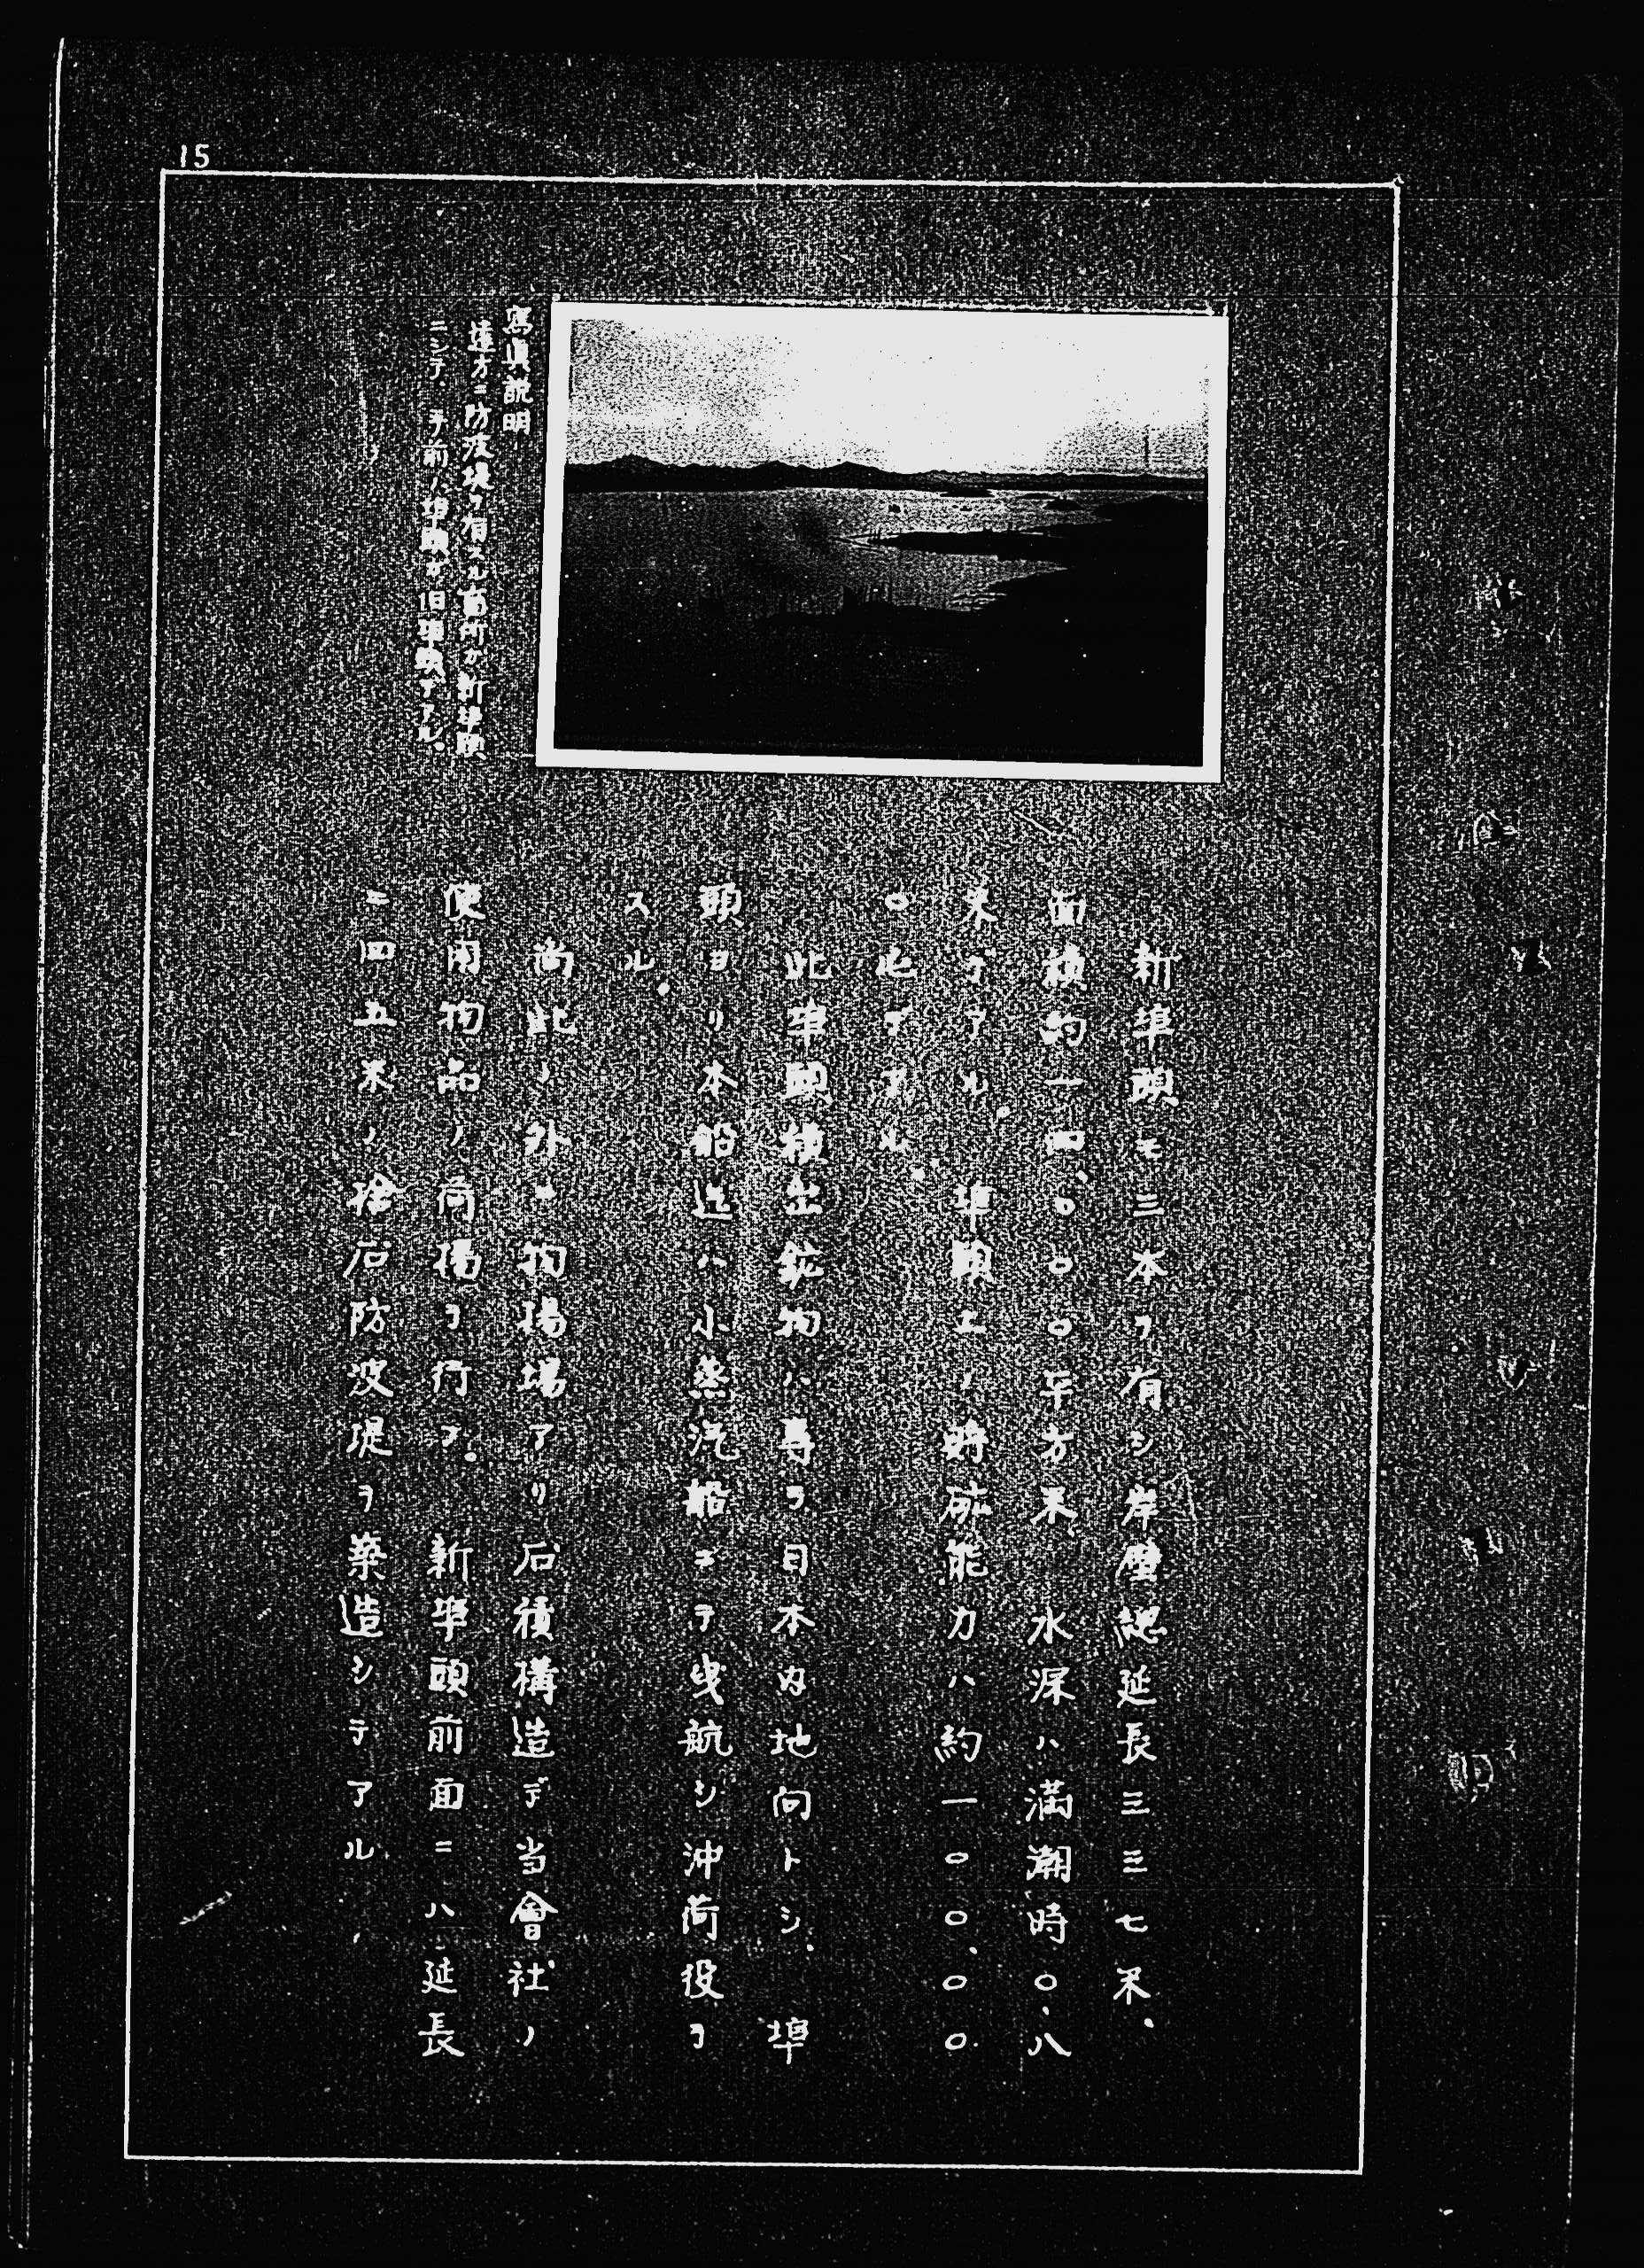 15
寫眞説明
遠方ニ防波堤ヲ有スル箇所ガ新埠頭
ニシテ、手前ノ埠頭ガ旧埠頭デアル。
新埠頭モ三本ヲ有シ岸壁総延長三三七米、
面積約一四、〇〇〇平方米、水深ハ満潮時〇、八
米デアル。埠頭上ノ貯砿能力ハ約一〇〇、〇〇
〇屯デアル。
此埠頭積出鉱物ハ專ラ日本内地向トシ、埠
頭ヨリ本船迄ハ小蒸汽船ニテ曳航シ沖荷役ヲ
スル。
尚此ノ外ニ物揚場アリ石積構造デ当會社ノ
使用物品ノ荷揚ヲ行フ。新埠頭前面ニハ延長
二四五米ノ捨石防波堤ヲ築造シテアル、